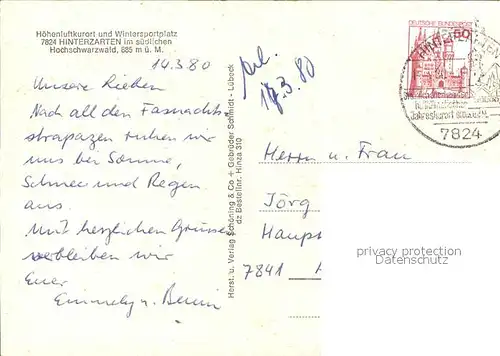 Höhenluftkurort und Wintersportplatz
7824 HINTERZARTEN im südlichen
Hochschwarzwald, 885 m ü. M.
14.3.80
Unsere Lieben
Nach all den Fasnachts
strapazen ruhen wir
uns bei Sonne,
Schnee und Regen
aus.
Mit herzlichen Grüssen
verbleiben wir
Euer
Emmely u.
Herst. u. Verlag Schöning & Co + Gebrüder Schmidt - Lübeck
dz Bestellnr. Hinza 310
erl.
17.3.80
DEUTSCHE BUNDESPOST
50
7824
Herrn u. Frau
Jörg
Haupt
7841
privacy protection
Datenschutz